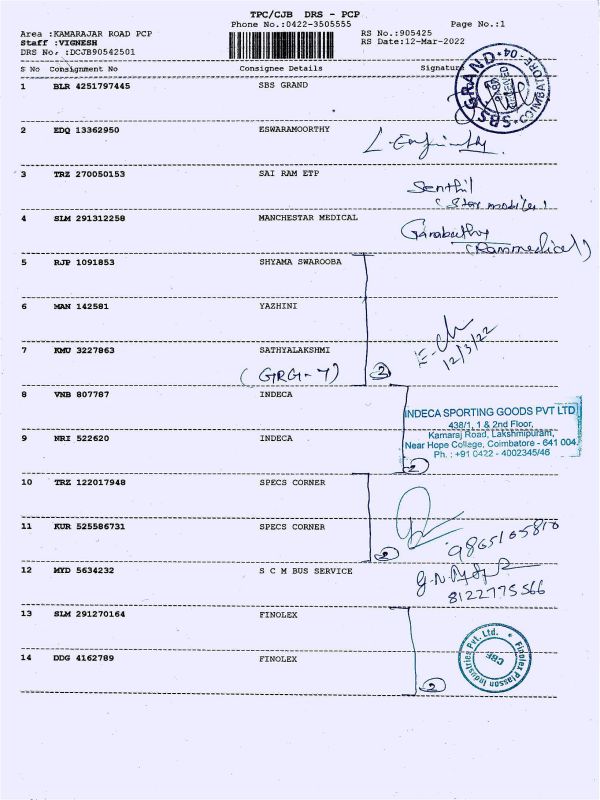 TPC/CJB DRS - PCP
Phone No.:0422-3505555 Page No.:1
Area :KAMARAJAR ROAD PCP RS No.:905425
Staff :VIGNESH RS Date:12-Mar-2022
DRS No.:DCJB90542501
S No Consignment No Consignee Details Signature
1 BLR 4251797445 SBS GRAND
SBS GRAND COIMBATORE - 04
2 EDQ 13362950 ESWARAMOORTHY
3 TRZ 270050153 SAI RAM ETP Senthil
(Star mobiles)
4 SLM 291312258 MANCHESTAR MEDICAL
(Ranmedical)
5 RJP 1091853 SHYAMA SWAROOBA
6 MAN 142581 YAZHINI
7 KMU 3227863 SATHYALAKSHMI 12/3/22
(GRG-7) 2
8 VNB 807787 INDECA
INDECA SPORTING GOODS PVT LTD
438/1, 1 & 2nd Floor,
Kamaraj Road, Lakshmipuram,
9 NRI 522620 INDECA Near Hope College, Coimbatore - 641 004.
Ph. : +91 0422 - 4002345/46
2
10 TRZ 122017948 SPECS CORNER
11 KUR 525586731 SPECS CORNER 9865165810
2
12 MYD 5634232 S C M BUS SERVICE
8122775566
13 SLM 291270164 FINOLEX
Finolex Plasson Industries Pvt. Ltd. *
CBE
14 DDG 4162789 FINOLEX
2